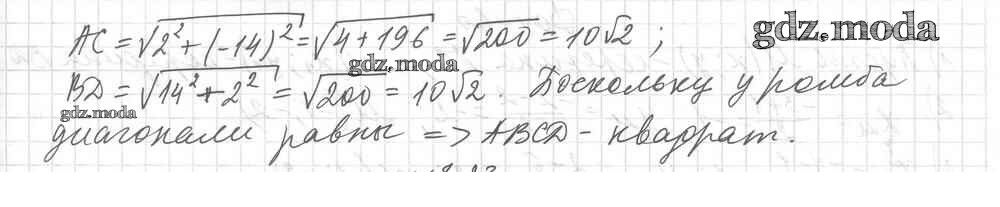 AC = √(2² + (-14)²) = √(4 + 196) = √200 = 10√2 ;
gdz.moda
gdz.moda
BD = √(14² + 2²) = √200 = 10√2 . Поскольку у ромба
gdz.moda
диагонали равны => ABCD - квадрат.